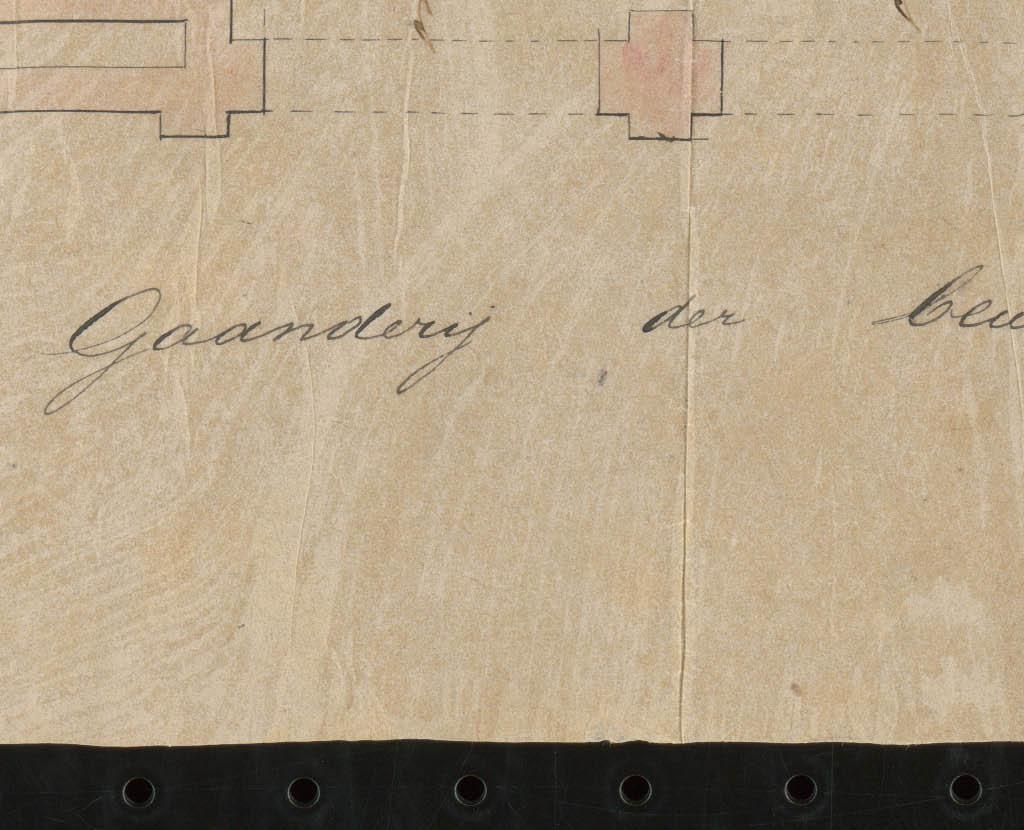 Gaanderij der